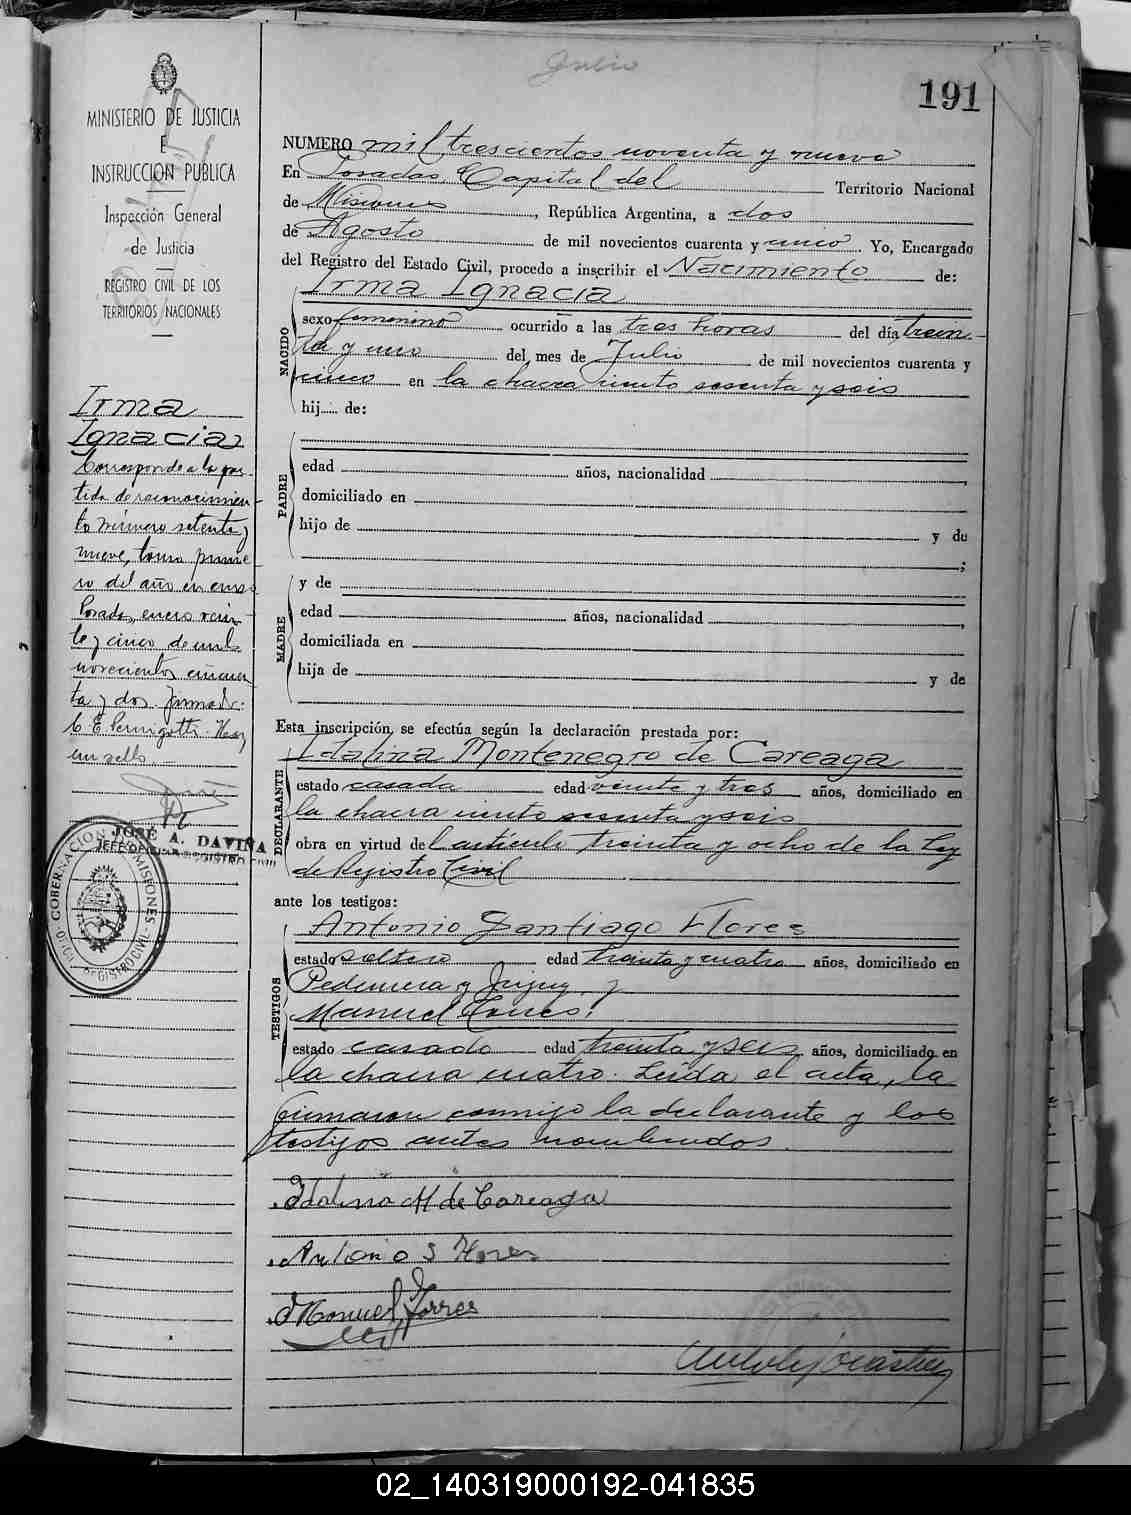 Julio
191
MINISTERIO DE JUSTICIA
E
INSTRUCCION PUBLICA
Inspección General
de Justicia
REGISTRO CIVIL DE LOS
TERRITORIOS NACIONALES
NUMERO mil trescientos noventa y nueve
En Posadas, Capital del Territorio Nacional
de Misiones, República Argentina, a dos
de Agosto de mil novecientos cuarenta y cinco. Yo, Encargado
del Registro del Estado Civil, procedo a inscribir el Nacimiento de:
NACIDO
Irma Ignacia
sexo femenino ocurrido a las tres horas del día trein-
ta y uno del mes de Julio de mil novecientos cuarenta y
cinco en la chacra ciento sesenta y seis
hij.... de:
PADRE
edad años, nacionalidad ,
domiciliado en
hijo de y de
;
MADRE
y de
edad años, nacionalidad ,
domiciliada en
hija de y de
Esta inscripción, se efectúa según la declaración prestada por:
DECLARANTE
Idalina Montenegro de Careaga
estado casada edad veinte y tres años, domiciliado en
la chacra ciento sesenta y seis
obra en virtud del artículo treinta y ocho de la Ley
de Registro Civil
ante los testigos:
TESTIGOS
Antonio Santiago Flores
estado soltero edad treinta y cuatro años, domiciliado en
Pedernera y Jujuy y
Manuel Torres;
estado casado edad treinta y seis años, domiciliado en
la chacra cuatro. Leída el acta, la
firmaron conmigo la declarante y los
testigos antes nombrados
Idalina M de Careaga
Antonio S Flores
Manuel Torres
Irma
Ignacia
Corresponde a la par-
tida de reconocimien-
to número setenta y
nueve, tomo prime-
ro del año en curso
Posadas, enero vein-
te y cinco de mil
novecientos cincuen-
ta y dos. firmado:
C. E. Pernigotti. Hay
un sello.
JOSÉ A. DAVIÑA
JEFE OFICINA REGISTRO CIVIL
GOBERNACION DE MISIONES
REGISTRO CIVIL
02_140319000192-041835